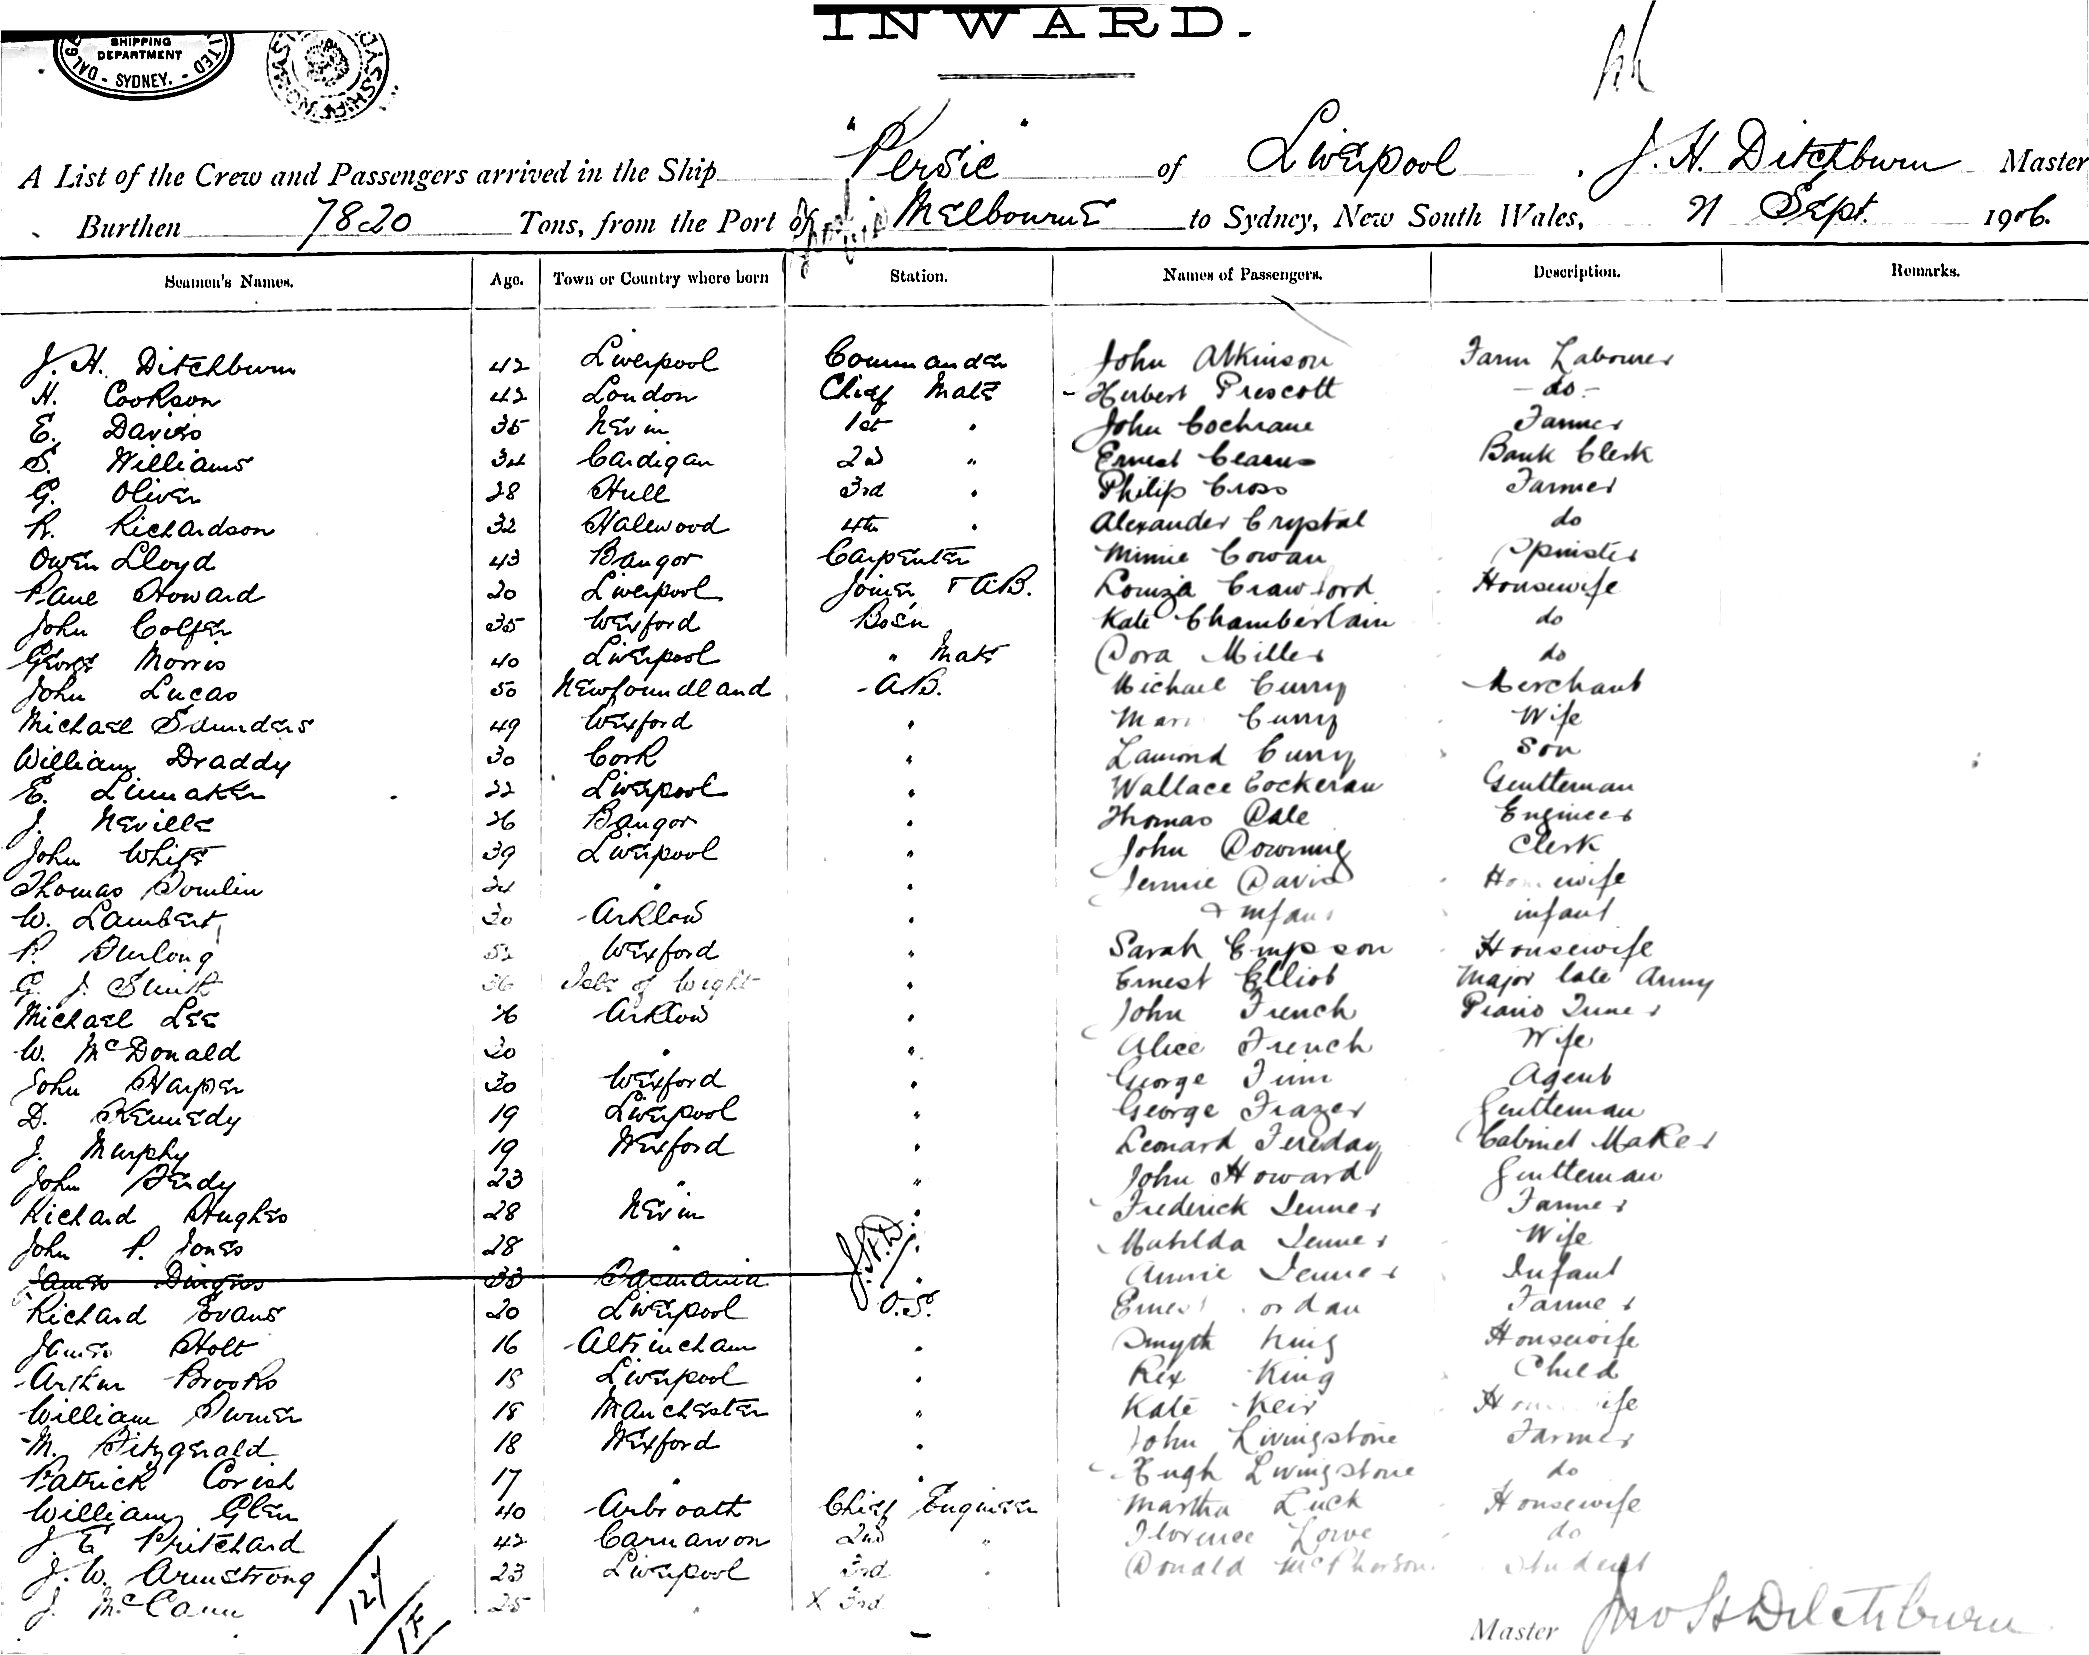 INWARD.
SHIPPING
DEPARTMENT
SYDNEY.
A List of the Crew and Passengers arrived in the Ship "Persic" of Liverpool, J. H. Ditchburn Master
Burthen 7820 Tons, from the Port of Melbourne to Sydney, New South Wales, 21 Sept. 1906.
Seamen's Names. Age. Town or Country where born Station. Names of Passengers. Description. Remarks.
J. H. Ditchburn 42 Liverpool Commander John Atkinson Farm Labourer
H. Cookson 42 London Chief Mate Herbert Prescott - do -
E. Davies 35 Nevin 1st " John Cochrane Farmer
S. Williams 34 Cardigan 2nd " Ernest Cearns Bank Clerk
G. Oliver 28 Hull 3rd " Philip Cross Farmer
R. Richardson 32 Halewood 4th " Alexander Crystal do
Owen Lloyd 43 Bangor Carpenter Minnie Cowan Spinster
Paul Howard 20 Liverpool Joiner & A.B. Louiza Crawford Housewife
John Colfer 35 Wexford Bo'sn Kate Chamberlain do
George Morris 40 Liverpool " Mate Dora Miller do
John Lucas 50 Newfoundland A.B. Michael Curry Merchant
Michael Saunders 49 Wexford " Curry Wife
William Draddy 30 Cork " Lamond Curry Son
E. Linnaker 22 Liverpool " Wallace Cockeran Gentleman
J. Neville 26 Bangor " Thomas Dale Engineer
John White 39 Liverpool " John Downing Clerk
Thomas Tomlin 24 " " Jennie Davis Housewife
W. Lambert 30 Arklow " & infant infant
P. Furlong 52 Wexford " Sarah Empson Housewife
G. J. Smith 36 Isle of Wight " Ernest Elliot Major late Army
Michael Lee 26 Arklow " John French Piano Tuner
W. McDonald 30 " " Alice French Wife
John Harper 30 Wexford " George Finn Agent
D. Kennedy 19 Liverpool " George Frazer Gentleman
J. Murphy 19 Wexford " Leonard Fereday Cabinet Maker
John Fendy 23 " " John Howard Gentleman
Richard Hughes 28 Nevin " Frederick Jenner Farmer
John P. Jones 28 " " Matilda Jenner Wife
James 33 Tasmania J.H.D. " Annie Jenner Infant
Richard Evans 20 Liverpool O.S. Ernest Jordan Farmer
James Holt 16 Altrincham " Smyth King Housewife
Arthur Brooks 18 Liverpool " Rex King Child
William Turner 18 Manchester " Kate Keir Housewife
M. Fitzgerald 18 Wexford " John Livingstone Farmer
Patrick Corish 17 " " Hugh Livingstone do
William Glen 40 Arbroath Chief Engineer Martha Luck Housewife
J. E. Pritchard 42 Carnarvon 2nd " Florence Lowe do
J. W. Armstrong 23 Liverpool 3rd " Donald McPherson Student
J. McCann 25 " X 3rd
Master Jno H Ditchburn